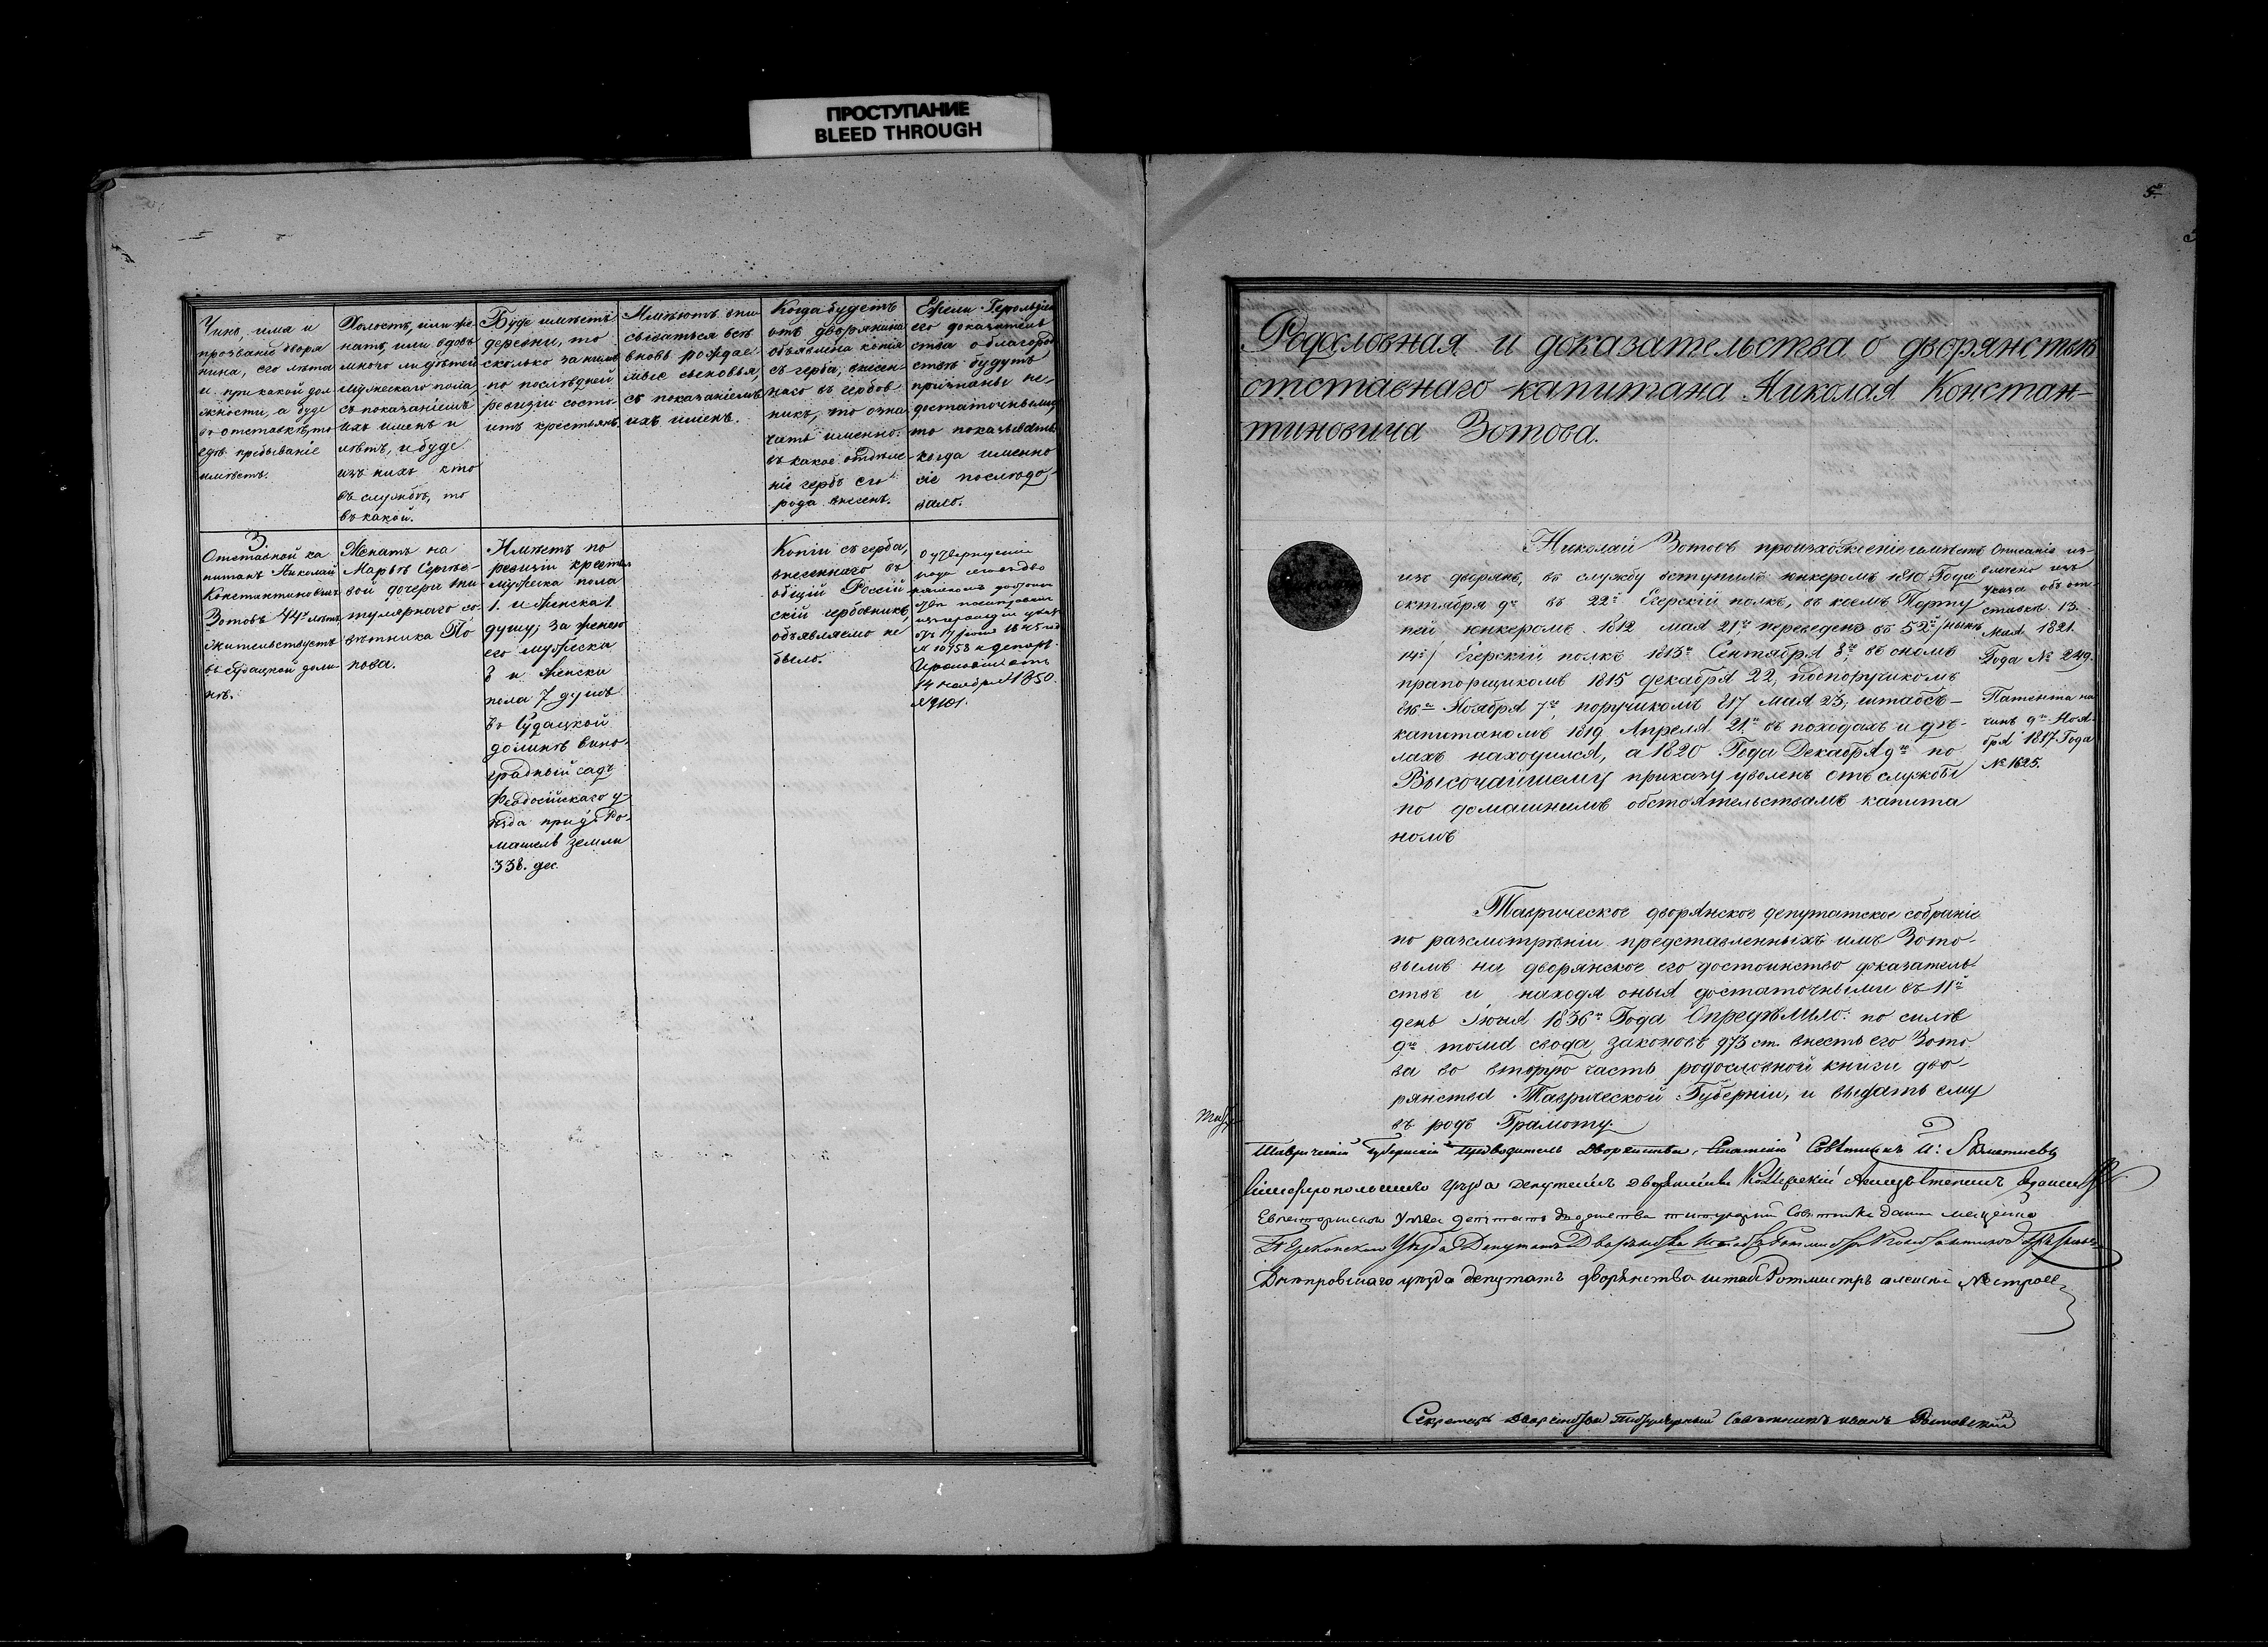 ПРОСТУПАНИЕ
BLEED THROUGH
Чинъ, имя и
прозваніе дворя
нина, его лѣта
и при какой дол
жности, а буде
въ отставкѣ, то
гдѣ пребываніе
имѣетъ.
Холостъ, или же-
натъ, или вдовъ
много ли дѣтей
мужескаго пола,
съ показаніемъ
ихъ именъ и
лѣтъ, и буде
изъ нихъ кто
въ службѣ, то
въ какой.
Буде имѣетъ
деревни, то
сколько за нимъ
по послѣдней
ревизіи состо-
итъ крестьянъ.
Имѣютъ впи
сываться всѣ
вновь рождае-
мые сыновья,
съ показаніемъ
ихъ именъ.
Когда будетъ
отъ дворянина
объявлена копія
съ герба, внесен-
наго въ гербов
никъ, то озна
чать именно
въ какое отдѣле-
ніе гербъ его
рода внесенъ.
Ежели Герольдіи
его доказатель
ства о благород
ствѣ будутъ
признаны не-
достаточными
то показывать
когда именно
сіе послѣдо-
вало.
3.
Отставной ка
питанъ Николай
Константиновичъ
Зотовъ 44 лѣтъ
Жительствуетъ
въ Судацкой доли
нѣ.
Женатъ на
Марьѣ Сергѣе-
вой дочери ти
тулярнаго со-
вѣтника По
пова.
Имѣетъ по
ревизіи крестьян
мужеска пола
1. и женска 1.
душу; за женою
его мужеска
3 и женска
пола 7 душъ
въ Судацкой
долинѣ вино-
градный садъ
Феодосійскаго у-
ѣзда при д. Ро-
машелѣ земли
338. дес.
Копіи съ герба,
внесеннаго въ
общій Россій
скій гербовникъ,
объявляемо не
было.
1845
№ 10758
14 ноября 1850.
№ 9101.
5
Родословная и доказательства о дворянствѣ
отставнаго капитана Николая Констан-
тиновича Зотова.
Николай Зотовъ происхожденіе имѣетъ
изъ дворянъ, въ службу вступилъ юнкеромъ 1810 Года
октября 9го въ 22й Егерскій полкъ, въ коемъ Порту
пей юнкеромъ 1812 мая 21го, переведенъ въ 52й /нынѣ
14й/ Егерскій полкъ 1813го Сентября 8го, въ ономъ
прапорщикомъ 1815 декабря 22, подпоручикомъ
816го Ноября 7го, поручикомъ 817 мая 23, штабсъ-
капитаномъ 1819 Апреля 21го въ походахъ и дѣ-
лахъ находился, а 1820 Года Декабря 9го по
Высочайшему приказу уволенъ отъ службы
по домашнимъ обстоятельствамъ капита
номъ
Описаніе из-
влечено изъ
указа объ от-
ставкѣ 13.
Мая 1821.
Года № 249.
Патента на
чинъ 9го Ноя-
бря 1817 Года
№ 1625.
Таврическое дворянское депутатское собраніе
по разсмотрѣніи представленныхъ имъ Зото-
вымъ на дворянское его достоинство доказатель-
ствъ и находя оныя достаточными въ 11й
день Іюня 1836го Года Опредѣлило: по силѣ
9го тома свода законовъ 973 ст. внесть его Зото
ва во вторую часть родословной книги дво-
рянства Таврической Губерніи, и выдать ему
въ родъ Грамоту.
Таврический Губернский Предводитель Дворянства, Статский Советникъ
Симферопольского Уезда депутатъ дворянства
Евпаторийского Уезда депутатъ дворянства титулярный Советникъ
Перекопского Уезда Депутатъ Дворянства Штабъ Ротмистръ
Днепровскаго уезда депутатъ дворянства штабъ Ротмистръ
Секретарь Дворянства Титулярный Советникъ иванъ